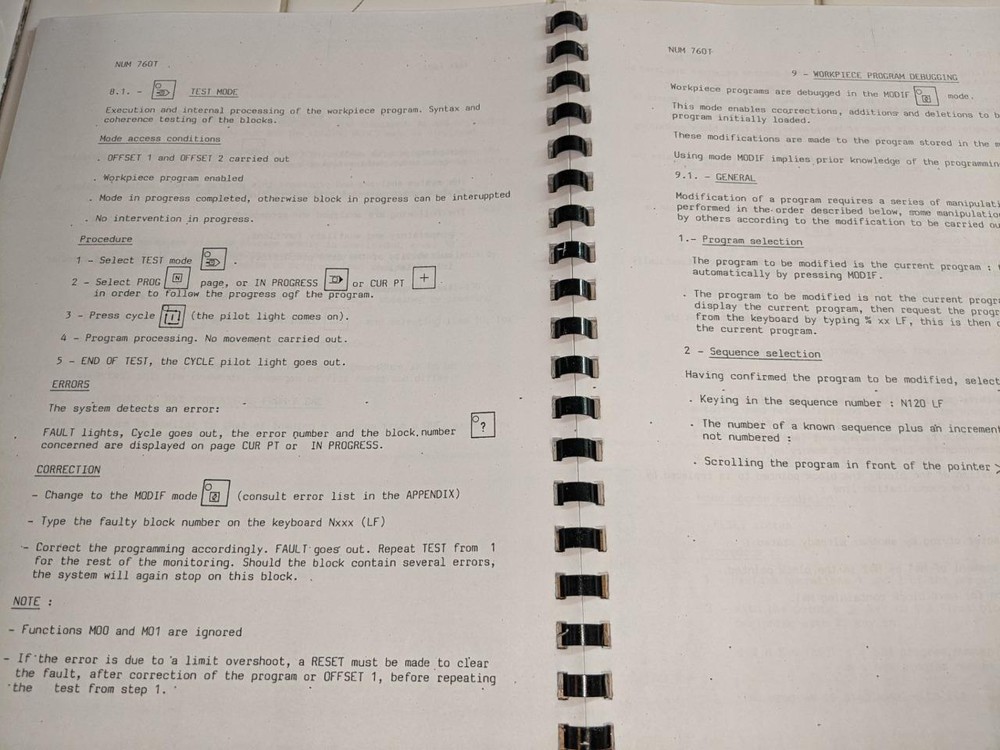 NUM 760T
8.1. - TEST MODE
Execution and internal processing of the workpiece program. Syntax and
coherence testing of the blocks.
Mode access conditions
. OFFSET 1 and OFFSET 2 carried out
. Workpiece program enabled
. Mode in progress completed, otherwise block in progress can be interuppted
. No intervention in progress.
Procedure
1 - Select TEST mode .
2 - Select PROG N page, or IN PROGRESS or CUR PT +
in order to follow the progress ogf the program.
3 - Press cycle (the pilot light comes on).
4 - Program processing. No movement carried out.
5 - END OF TEST, the CYCLE pilot light goes out.
ERRORS
The system detects an error:
?
FAULT lights, Cycle goes out, the error number and the block number
concerned are displayed on page CUR PT or IN PROGRESS.
CORRECTION
- Change to the MODIF mode (consult error list in the APPENDIX)
- Type the faulty block number on the keyboard Nxxx (LF)
- Correct the programming accordingly. FAULT goes out. Repeat TEST from 1
for the rest of the monitoring. Should the block contain several errors,
the system will again stop on this block.
NOTE :
- Functions M00 and M01 are ignored
- If the error is due to a limit overshoot, a RESET must be made to clear
the fault, after correction of the program or OFFSET 1, before repeating
the test from step 1.
NUM 760T
9 - WORKPIECE PROGRAM DEBUGGING
Workpiece programs are debugged in the MODIF mode.
This mode enables ccorrections, additions and deletions to
program initially loaded.
These modifications are made to the program stored in the
Using mode MODIF implies prior knowledge of the
9.1. - GENERAL
Modification of a program requires a series of
performed in the order described below, some
by others according to the modification to be carried
1.- Program selection
The program to be modified is the current program :
automatically by pressing MODIF.
. The program to be modified is not the current
display the current program, then request the
from the keyboard by typing % xx LF, this is then
the current program.
2 - Sequence selection
Having confirmed the program to be modified, select
. Keying in the sequence number : N120 LF
. The number of a known sequence plus an increment
not numbered :
. Scrolling the program in front of the pointer >